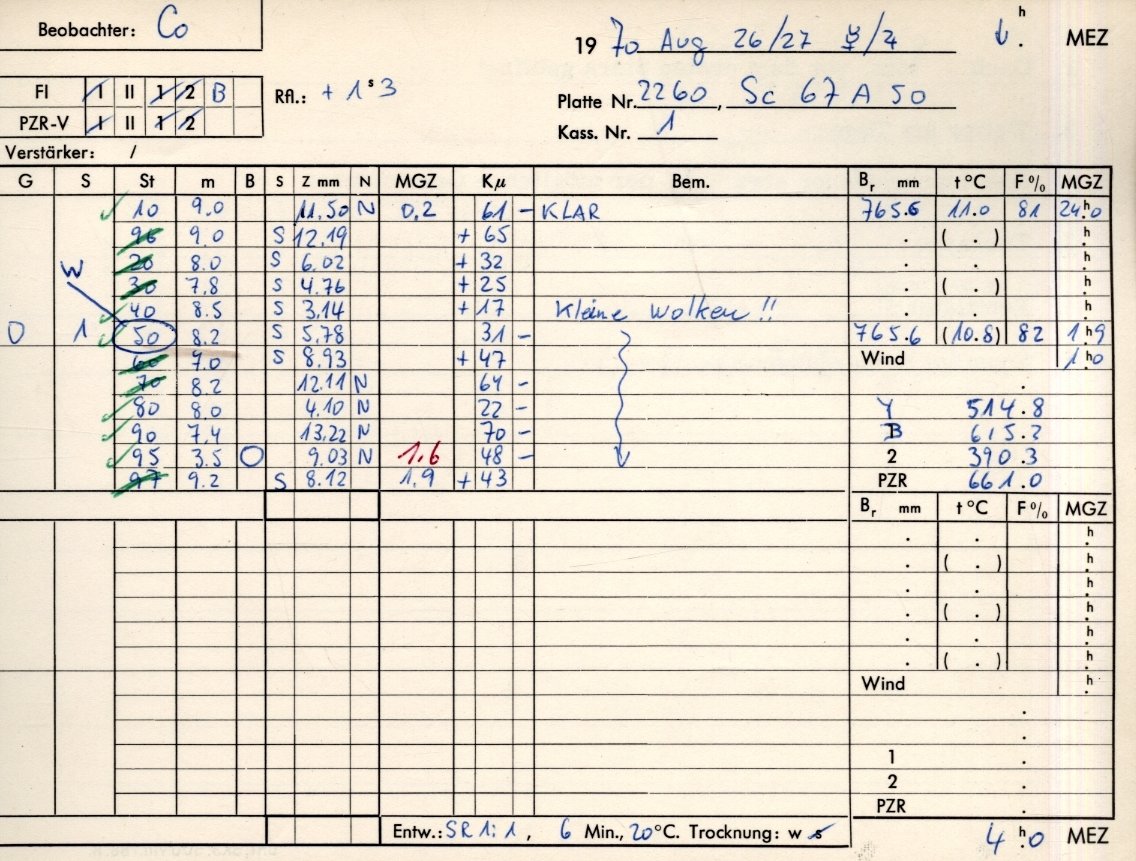 Beobachter: Co
19 70 Aug 26/27 ☿/♃ h . MEZ
FI I II 1 2 B
Rfl.: + 1s3
Platte Nr. 2260, Sc 67 A 50
PZR-V I II 1 2
Kass. Nr. 1
Verstärker: /
G S St m B S Z mm N MGZ Kμ Bem. Br mm t °C F % MGZ
10 9.0 11.50 N 0,2 61 – KLAR 765.6 11.0 81 24h.0
96 9.0 S 12.19 + 65 . ( . ) h.
20 8.0 S 6.02 + 32 . . h.
W
30 7.8 S 4.76 + 25 . ( . ) h.
40 8.5 S 3.14 + 17 Kleine Wolken!! . . h.
0 1 50 8.2 S 5.78 31 – 765.6 (10.8) 82 1h.9
60 7.0 S 8.93 + 47 Wind 1h.0
70 8.2 12.11 N 64 – .
80 8.0 4.10 N 22 – Y 514.8
90 7.4 13.22 N 70 – B 615.2
95 3.5 O 9.03 N 1.6 48 – 2 390.3
97 9.2 S 8.12 1.9 + 43 PZR 661.0
Br mm t °C F % MGZ
. . h.
. ( . ) h.
. . h.
. ( . ) h.
. . h.
. ( . ) h.
Wind h.
.
.
1 .
2 .
PZR .
Entw.: SR 1:1, 6 Min., 20 °C. Trocknung: w s 4h.0 MEZ